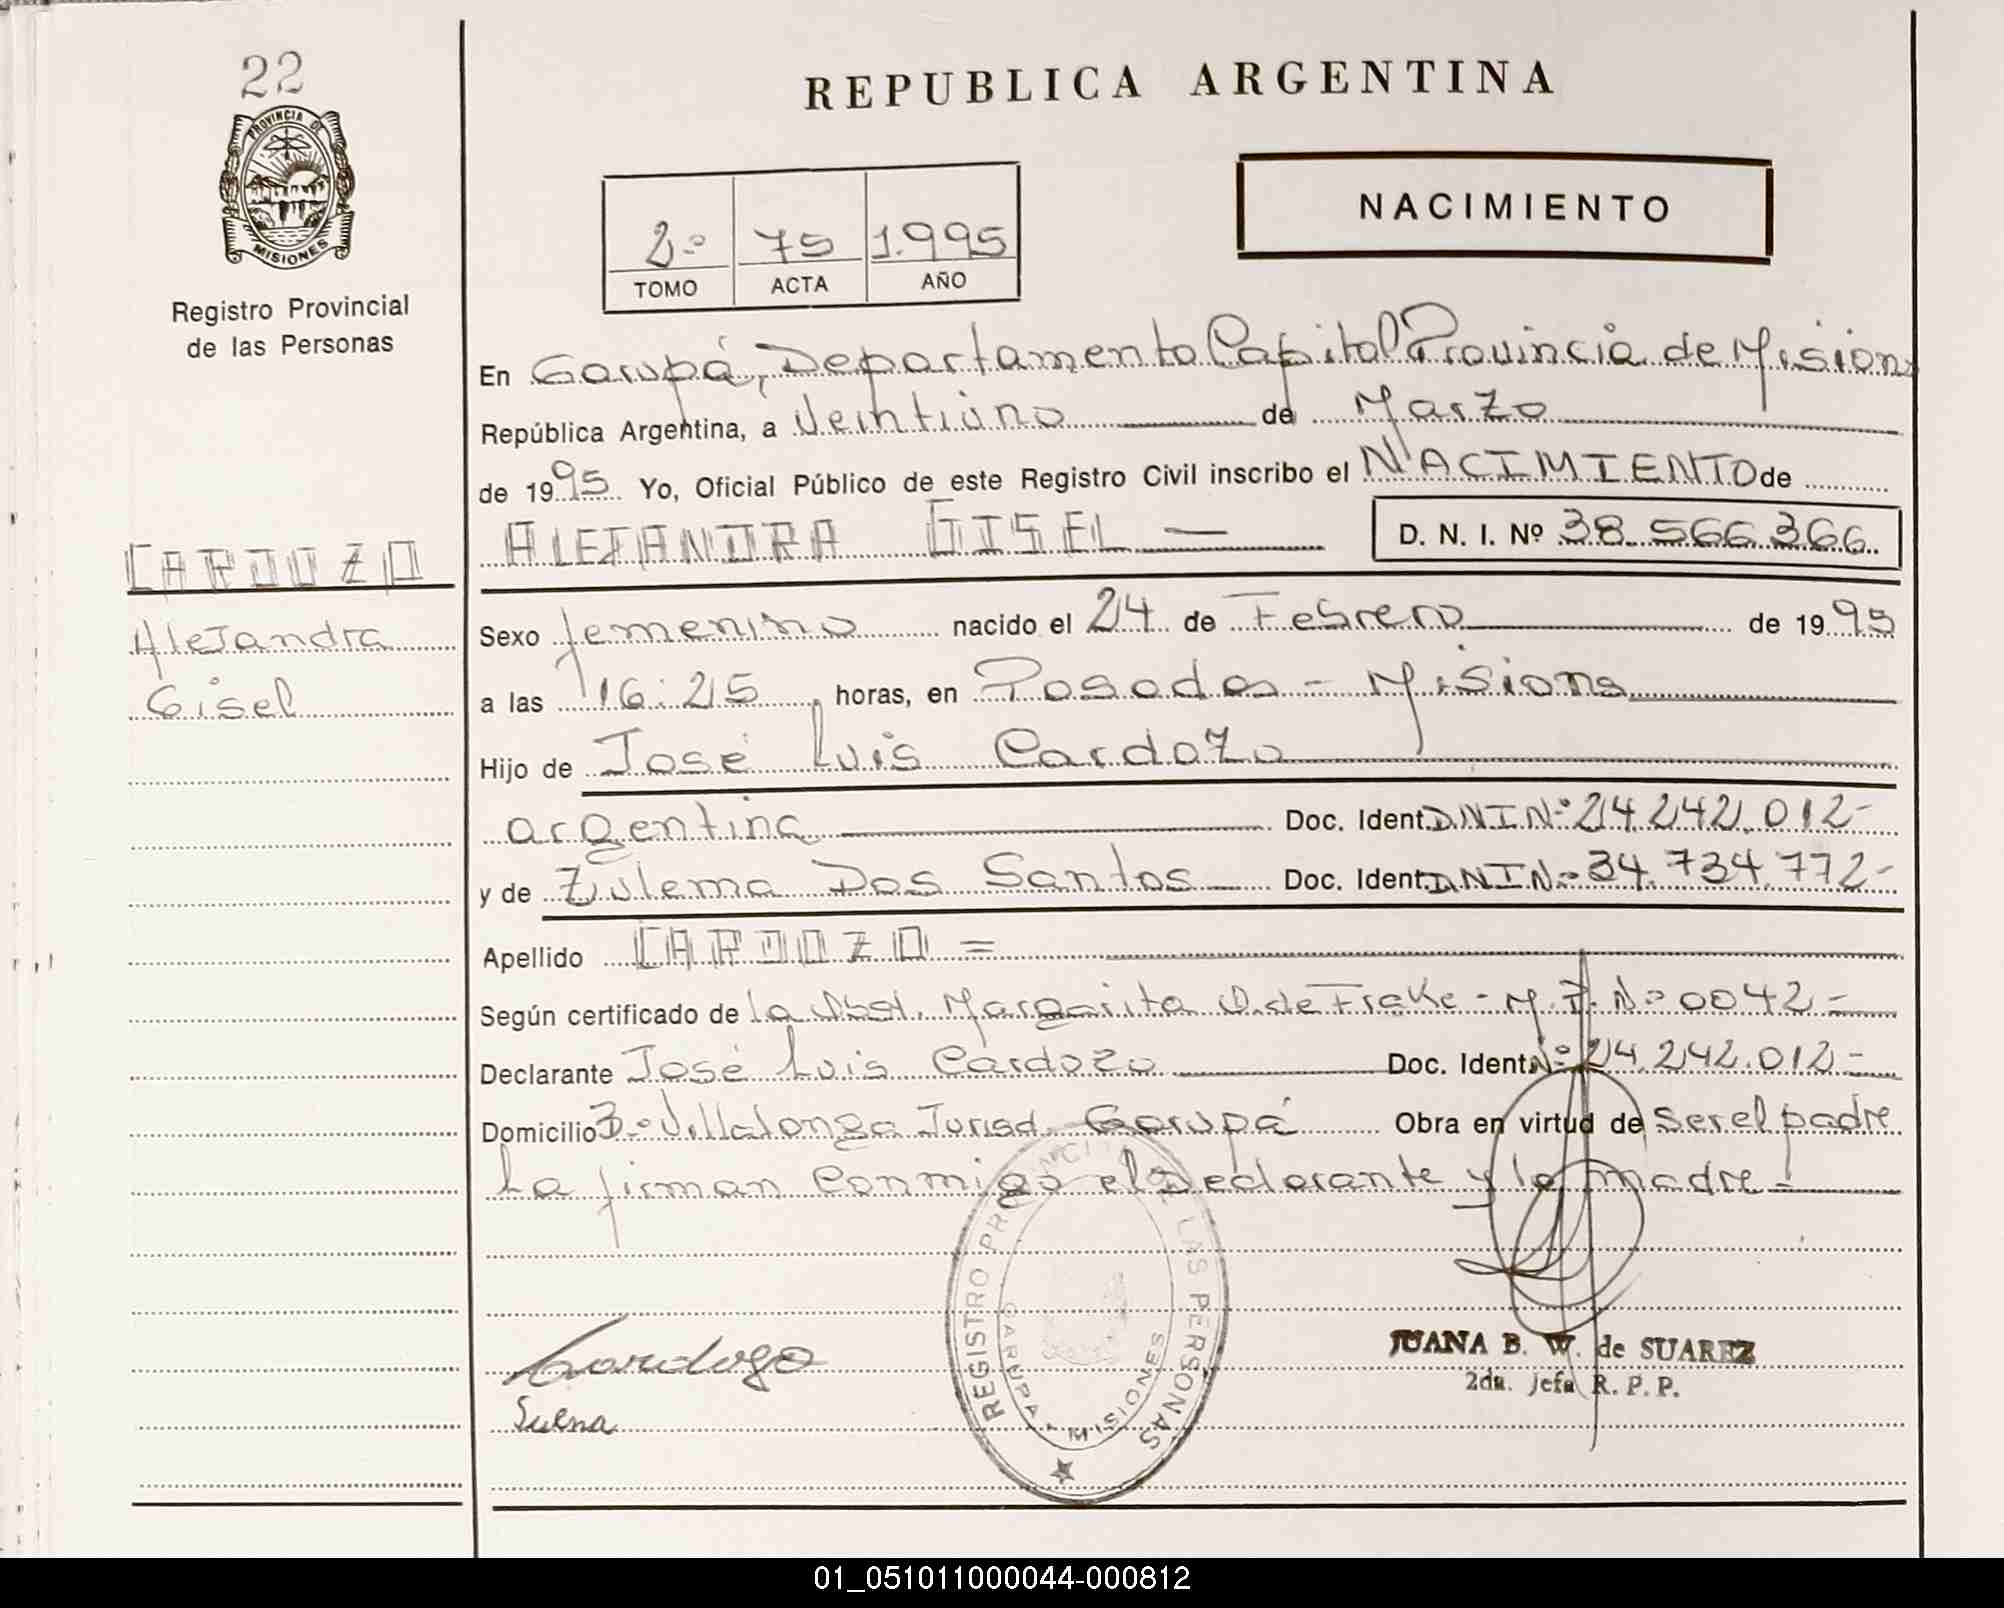 22
PROVINCIA DE
MISIONES
Registro Provincial
de las Personas
CARDOZO
Alejandra
Gisel
REPUBLICA ARGENTINA
NACIMIENTO
2º 75 1.995
TOMO ACTA AÑO
En Garupá, Departamento Capital Provincia de Mision
República Argentina, a Veintiuno de Marzo
de 1995 Yo, Oficial Público de este Registro Civil inscribo el NACIMIENTO de
ALEJANDRA GISEL — D. N. I. Nº 38.566.366
Sexo femenino nacido el 24 de Febrero de 1995
a las 16:25 horas, en Posadas - Misions
Hijo de José Luis Cardozo
argentina Doc. Ident. DNI Nº 24.242.012-
y de Zulema Dos Santos Doc. Ident. DNI Nº 34.734.772-
Apellido CARDOZO =
Según certificado de la Obst. Margarita O. de Frake - M.P. Nº 0042 -
Declarante José Luis Cardozo Doc. Ident. Nº 24.242.012-
Domicilio Bº Villalonga Jurisd. Garupá Obra en virtud de ser el padre
La firman conmigo el Declarante y la madre -
REGISTRO PROVINCIAL DE LAS PERSONAS
GARUPA - MISIONES
Cardozo
JUANA B. W. de SUAREZ
2da. Jefa R. P. P.
01_051011000044-000812